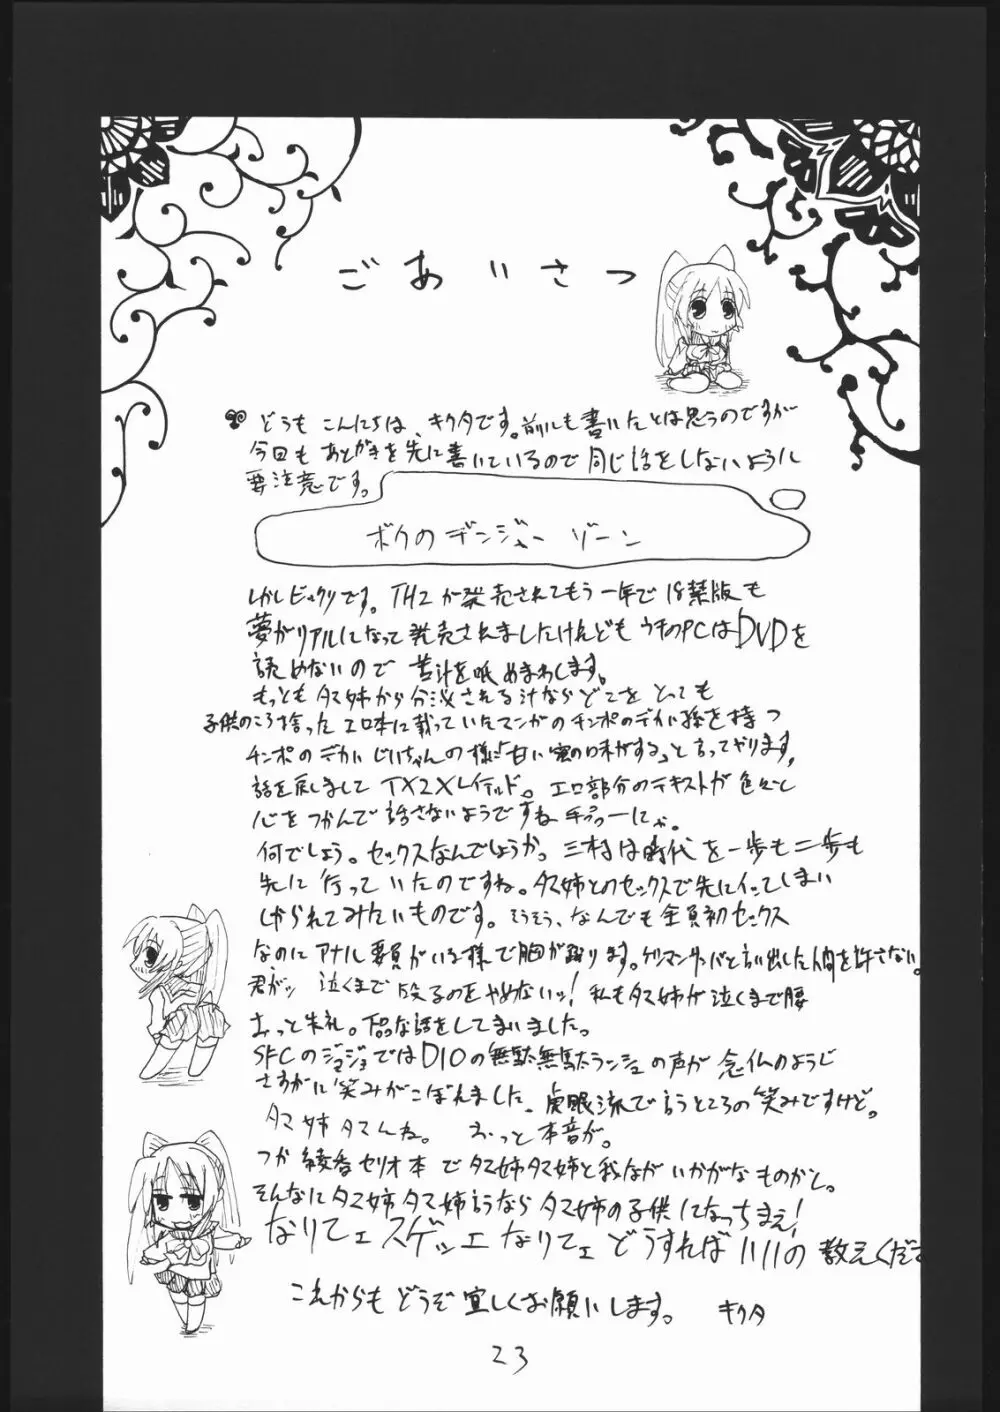 ごあいさつ
どうも こんにちは、キクタです。前にも書いたとは思うのですが
今回も あとがきを先に書いているので同じ話をしないように
要注意です。
ボクのデンジャー ゾーン
しかしビックリです。TH2が発売されてもう一年で18禁版も
夢がリアルになって発売されましたけれどもウチのPCはDVDを
読めないので 苦汁を めまわします。
もっともタマ姉から分泌される汁ならどこをとっても
子供のころ拾ったエロ本に載っていたマンガのチンポのデカい孫を持つ
チンポのデカいじいちゃんの様に「甘い蜜の味がする」と言ってやります。
話を戻しまして TX2X 。エロ部分のテキストが色々と
心をつかんで話さないようですね
何でしょう。セックスなんでしょうか。三村は時代を一歩も二歩も
先に行っていたのですね。タマ姉とのセックスで先にイッてしまい
しかられてみたいものです。そうそう、なんでも全員初セックス
なのにアナル要員がいる様で胸が踊ります。 と言い出した人間を許さない。
君がッ 泣くまで 殴るのをやめないッ! 私もタマ姉が泣くまで腰
おっと失礼。下品な話をしてまいました。
SFCのジョジョではDIOの無駄無駄ラッシュの声が 念仏のようじ
さすがに笑みがこぼれました、虎眼流で言うところの笑みですけど。
タマ姉タマんね。 おっと本音が。
つか綾香セリオ本でタマ姉タマ姉と我ながいかがなものかと。
そんなにタマ姉タマ姉言うならタマ姉の子供になっちまえ!
なりてェスゲッェなりてェ どうすればいいの 教えくだ
これからもどうぞ宜しくお願いします。 キクタ
23